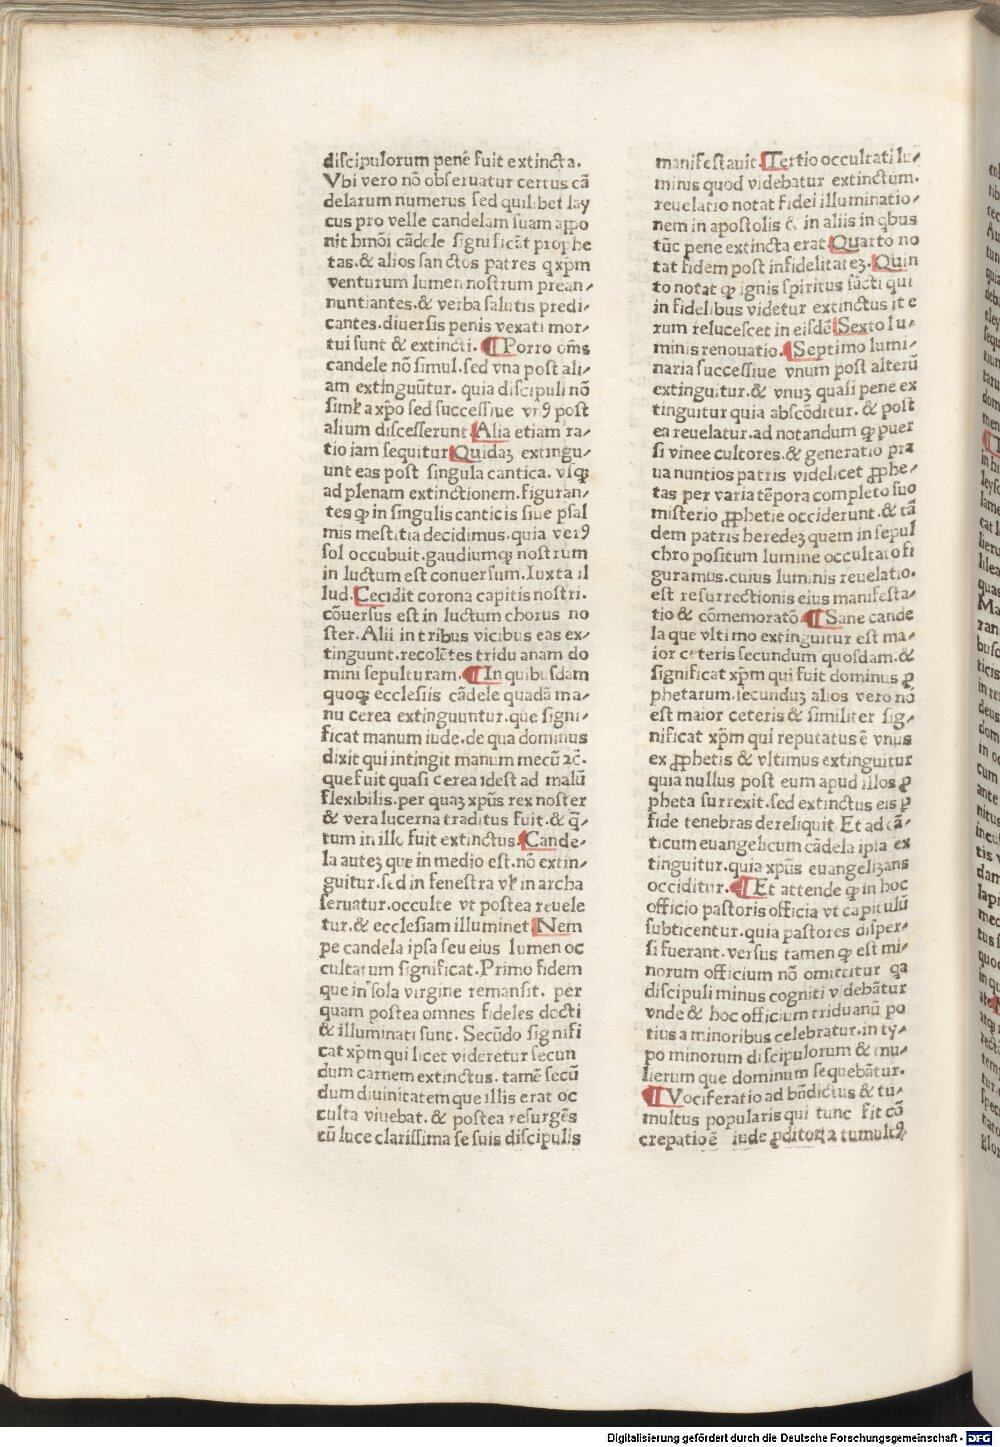 discipulorum penē fuit extincta.
Vbi vero nō obseruatur certus cā
delarum numerus sed quilibet lay
cus pro velle candelam suam appo
nit hmōi cādele significāt prophe
tas.& alios sanctos patres q xpm
venturum lumen nostrum prean⸗
nuntiantes.& verba salutis predi⸗
cantes.diuersis penis vexati mor⸗
tui sunt & extincti. ¶ Porro om̄s
candele nō simul.sed vna post ali⸗
am extinguūtur. quia discipuli nō
siml' a xp̄o sed successiue vnꝰ post
alium discesserunt.Alia etiam ra⸗
tio iam sequitur Quidaꝫ extingu⸗
unt eas post singula cantica. vsqꝫ
ad plenam extinctionem.figuran⸗
tes ꝙ in singulis canticis siue psal
mis mestitia decidimus.quia verꝰ
sol occubuit.gaudiumqꝫ nostrum
in luctum est conuersum.Iuxta il
lud.Cecidit corona capitis nostri.
cōuersus est in luctum chorus no
ster.Alii in tribus vicibus eas ex⸗
tinguunt.recolētes triduanam do
mini sepulturam.¶ In quibusdam
quoqꝫ ecclesiis cādele quadā ma⸗
nu cerea extinguuntur.que signi⸗
ficat manum iude.de qua dominus
dixit qui intingit manum mecū ⁊c̄.
que fuit quasi cerea idest ad malū
flexibilis.per quaꝫ xpūs rex noster
& vera lucerna traditus fuit.& q̄⸗
tum in illo fuit extinctus.Cande⸗
la auteꝫ que in medio est.nō extin⸗
guitur.sed in fenestra vl' in archa
seruatur.occulte vt postea reuele
tur.& ecclesiam illuminet.Nem
pe candela ipsa seu eius lumen oc
cultatum significat.Primo fidem
que in sola virgine remansit. per
quam postea omnes fideles docti
& illuminati sunt. Secūdo signifi
cat xp̄m qui licet videretur secun
dum carnem extinctus. tamē secū
dum diuinitatem que illis erat oc
culta viuebat. & postea resurgēs
cū luce clarissima se suis discipulis
manifestauit.Tertio occultati lu⸗
minis quod videbatur extinctum.
reuelatio notat fidei illuminatio⸗
nem in apostolis & in aliis in qbus
tūc pene extincta erat.Quarto no
tat fidem post infidelitateꝫ.Quin
to notat ꝙ ignis spiritus sācti qui
in fidelibus videtur extinctus ite
rum relucescet in eisdē Sexto lu⸗
minis renouatio.¶ Septimo lumi⸗
naria successiue vnum post alterū
extinguitur.& vnuꝫ quasi pene ex
tinguitur quia abscōditur. & post
ea reuelatur.ad notandum ꝙ puer
si vinee cultores.& generatio pra
ua nuntios patris videlicet ꝓphe⸗
tas per varia tēpora completo suo
misterio ꝓphetie occiderunt.& tā
dem patris heredeꝫ quem in sepul
chro positum lumine occultato fi
guramus.cuius luminis reuelatio.
est resurrectionis eius manifesta⸗
tio & cōmemoratō.¶ Sane cande
la que vltimo extinguitur est ma⸗
ior ceteris secundum quosdam.&
significat xp̄m qui fuit dominus ꝓ
phetarum.secunduꝫ alios vero nō
est maior ceteris & similiter sig⸗
nificat xp̄m qui reputatus ē vnus
ex ꝓphetis & vltimus extinguitur
quia nullus post eum apud illos ꝓ
pheta surrexit.sed extinctus eis ꝑ
fide tenebras dereliquit Et ad cā⸗
ticum euangelicum cādela ipsa ex
tinguitur.quia xpūs euangelizans
occiditur.¶ Et attende ꝙ in hoc
officio pastoris officia vt capitulū
subticentur.quia pastores disper⸗
si fuerant.versus tamen ꝙ est mi⸗
norum officium nō omittitur qa
discipuli minus cogniti videbātur
vnde & hoc officium triduanū po
tius a minoribus celebratur.in ty⸗
po minorum discipulorum & mu⸗
lierum que dominum sequebātur.
¶ Vociferatio ad bn̄dictus & tu⸗
multus popularis qui tunc fit cō
crepatio ē iude ꝓditoris ⁊ tumultꝰ
Digitalisierung gefördert durch die Deutsche Forschungsgemeinschaft - DFG